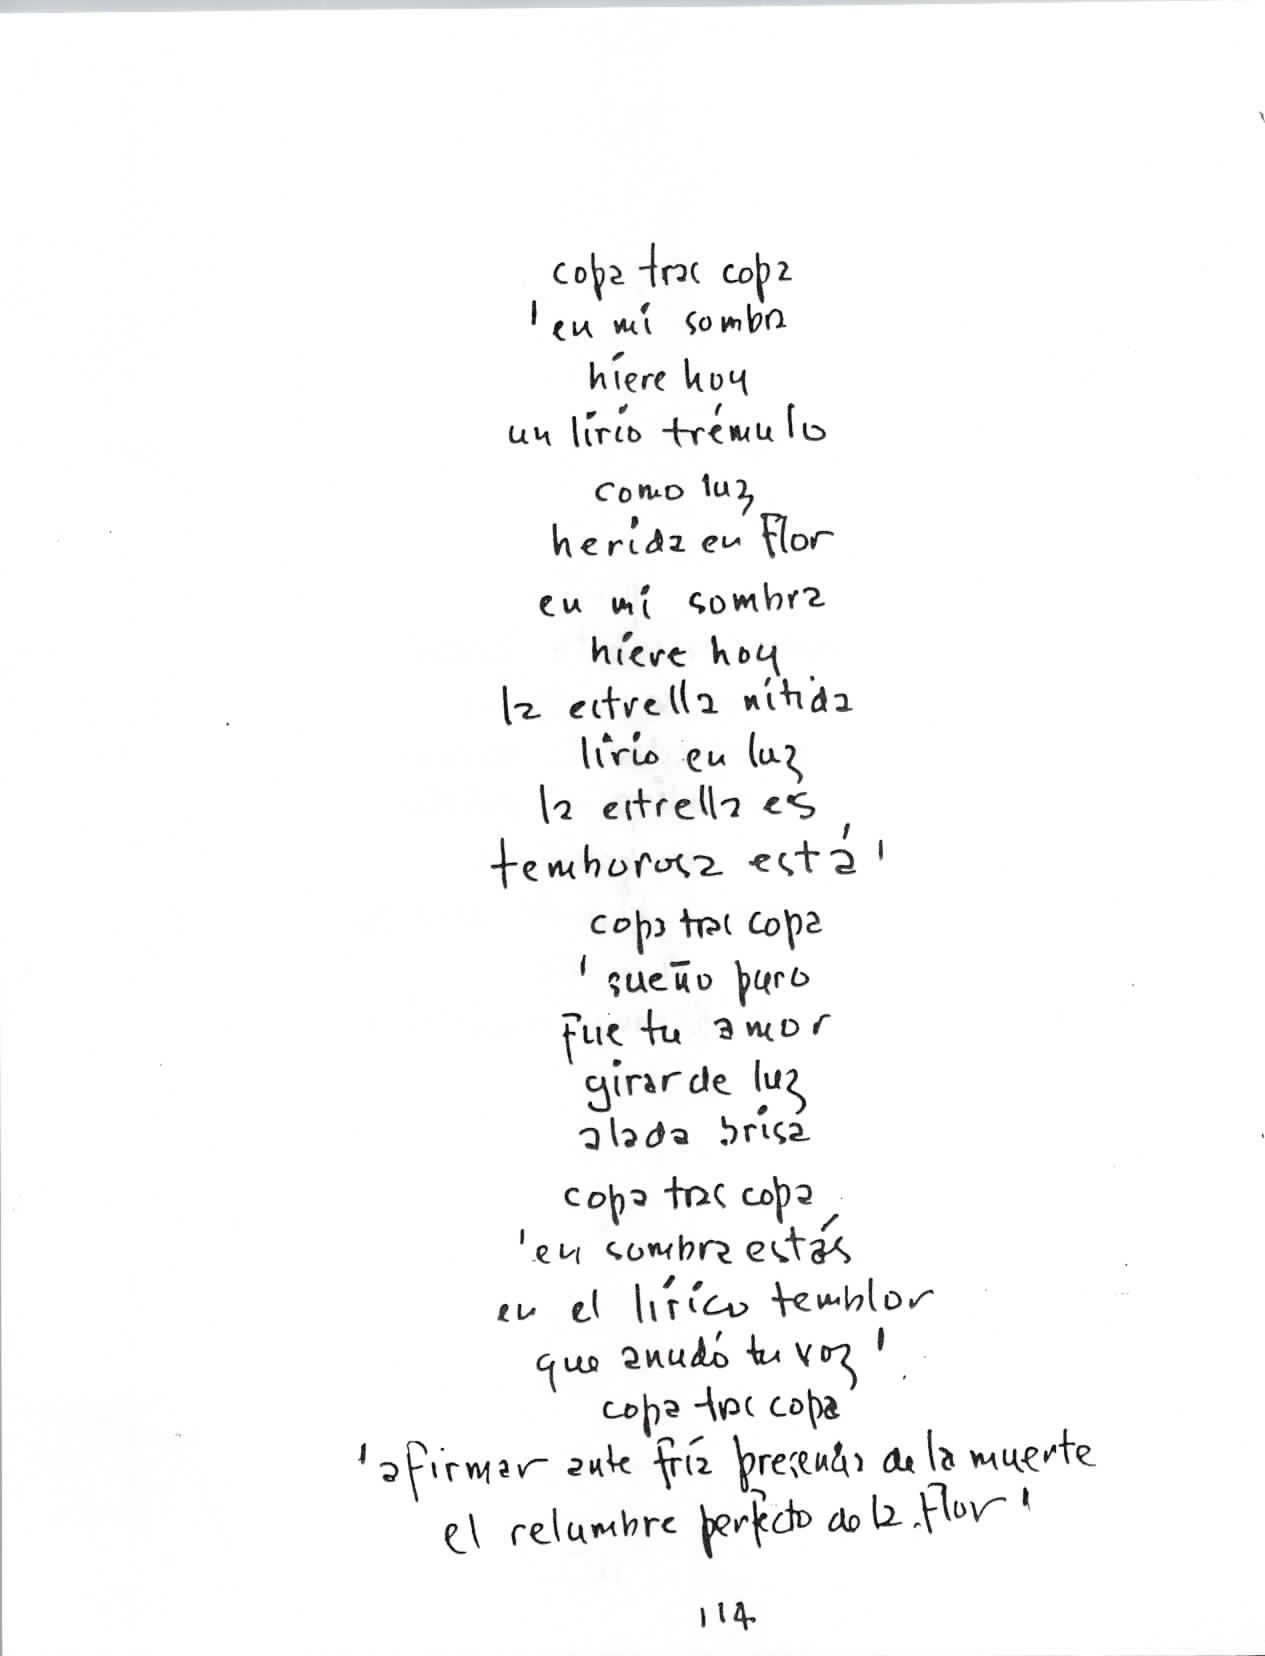 copa tras copa
'en mi sombra
hiere hoy
un lirio trémulo
como luz
herida en flor
en mi sombra
hiere hoy
la estrella nítida
lirio en luz
la estrella es
temborosa está'
copa tras copa
'sueño puro
fue tu amor
girar de luz
alada brisa
copa tras copa
'en sombra estás
en el lírico temblor
que anudó tu voz'
copa tras copa
'afirmar ante fría presencia de la muerte
el relumbre perfecto de la flor'
114